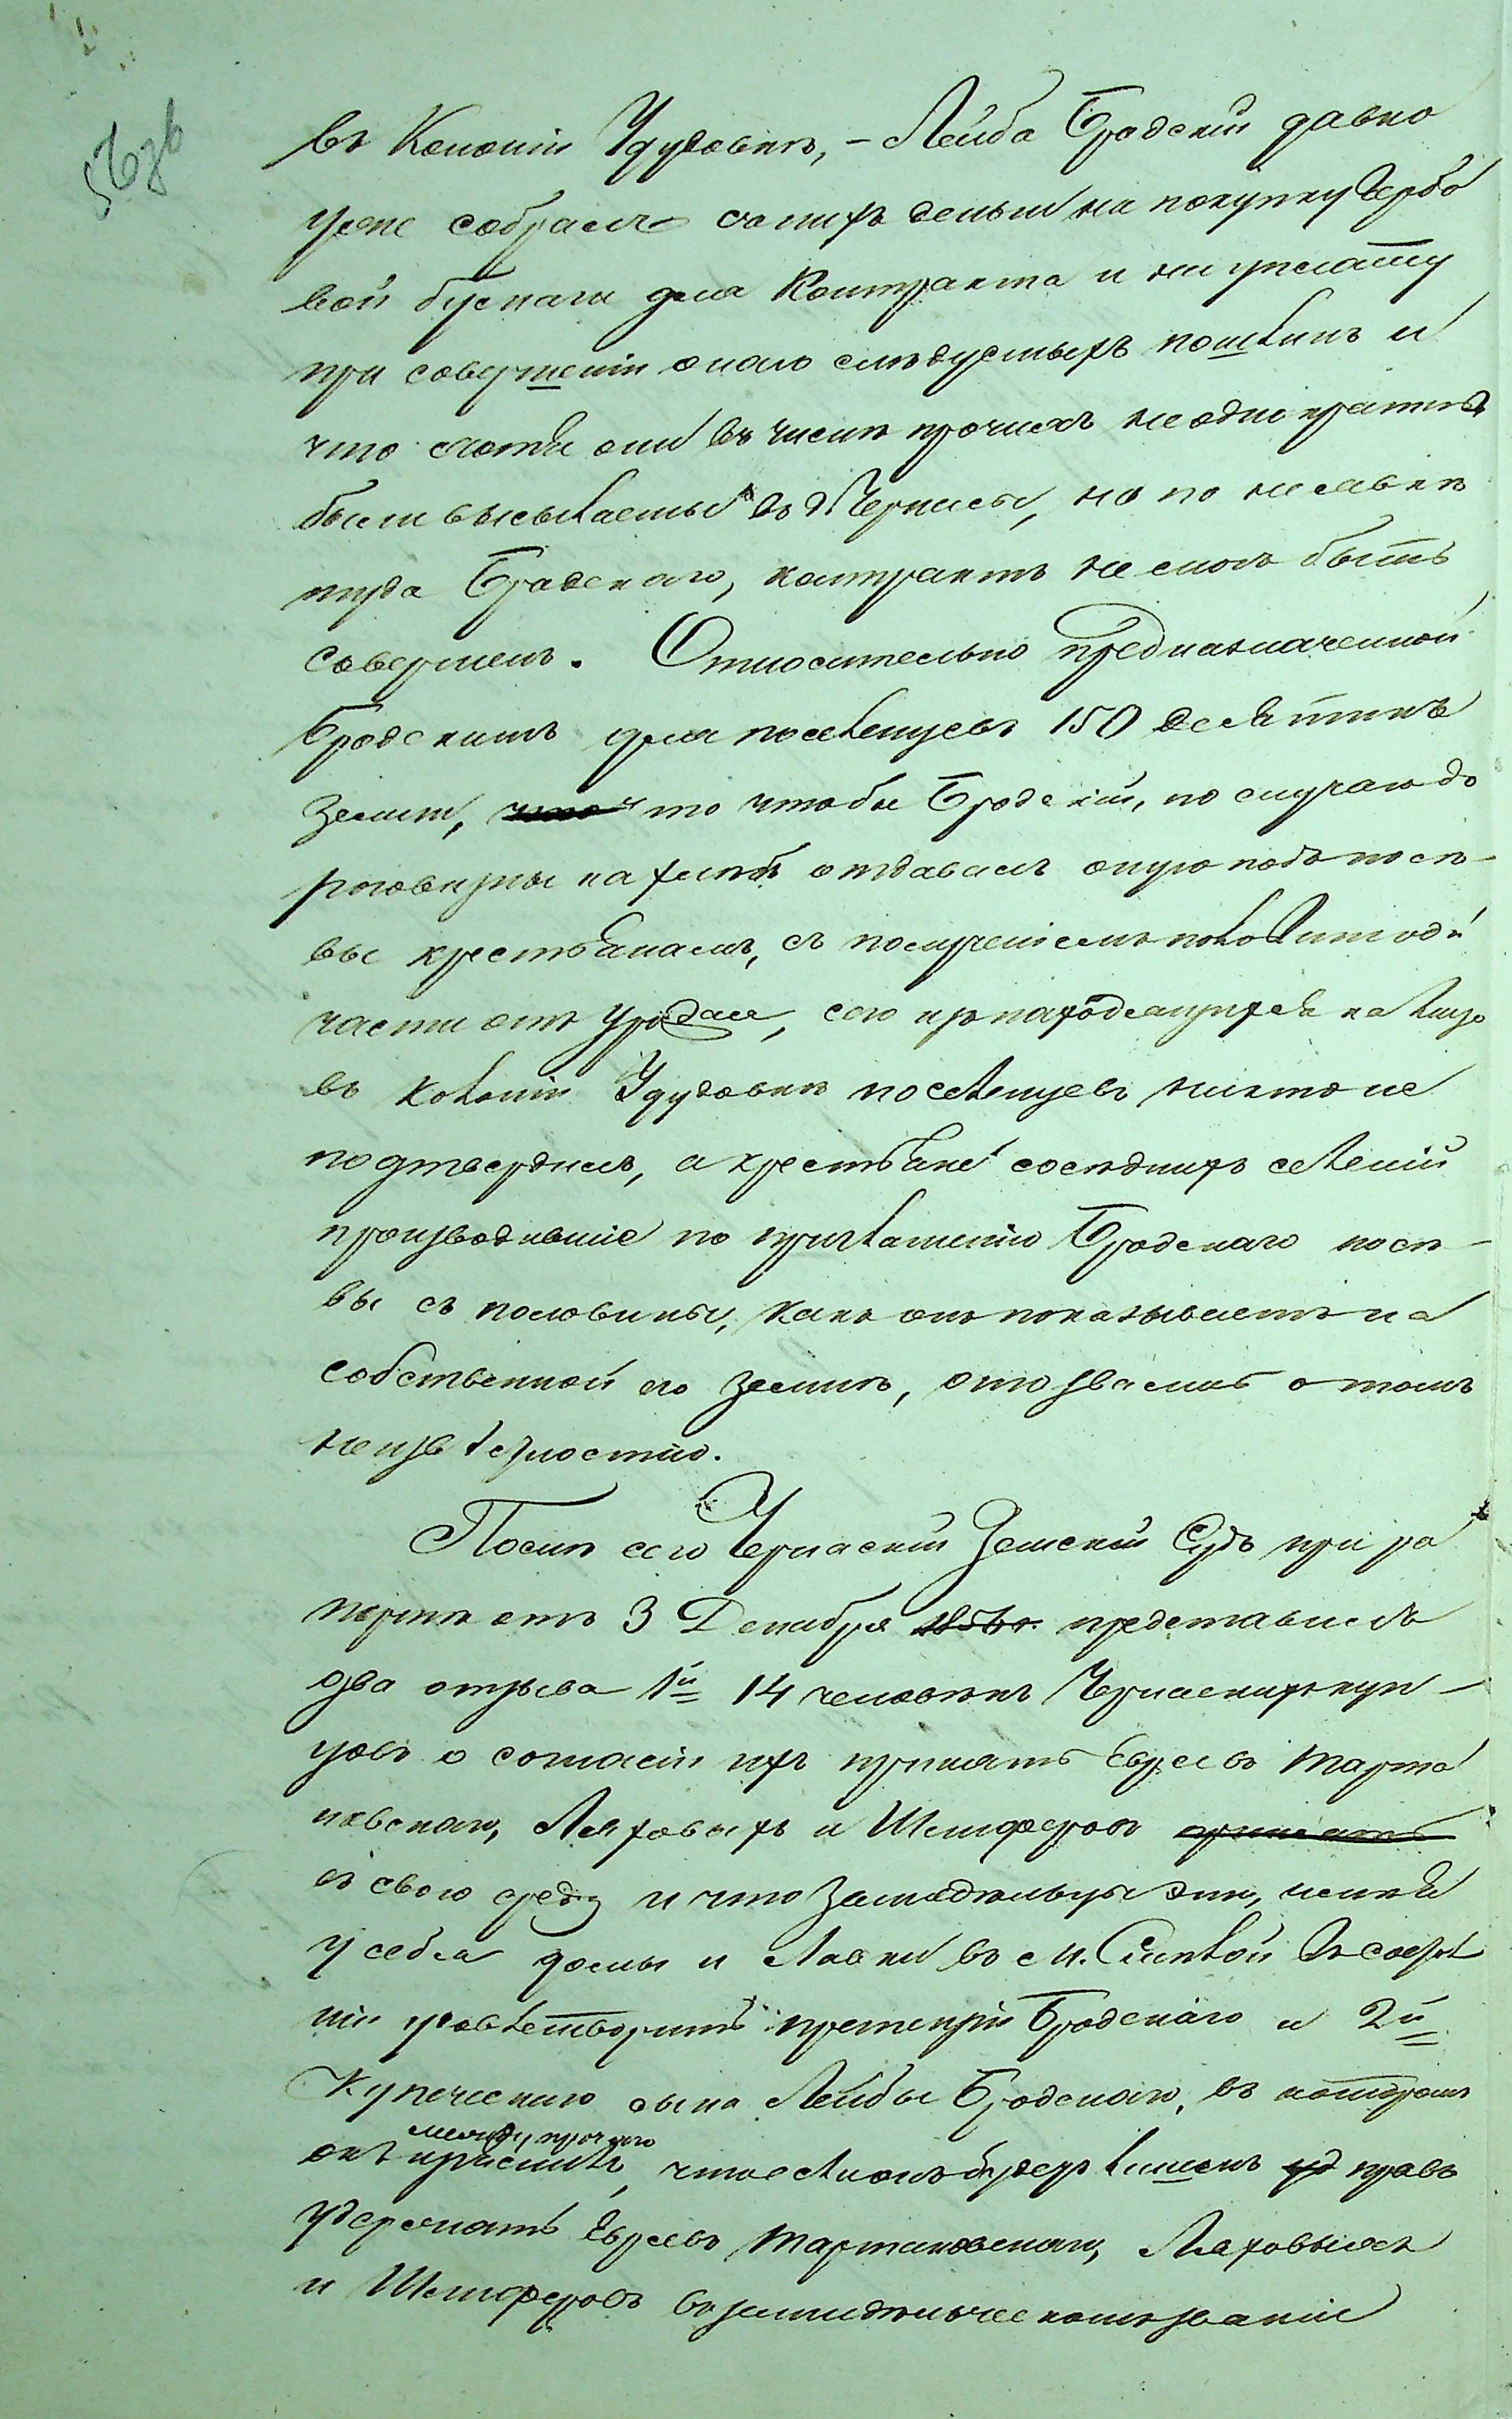 въ Колоніи Ущуровкѣ, – Лейба Бродскій давно
уже собралъ съ нихъ деньги на покупку Гербо
вой бумаги для Контракта и на уплату
при совершеніи онаго слѣдуемыхъ пошлинъ и
что хотя они въ числѣ прочихъ неоднократнѣ
были высылаемы въ г. Черкасы, но по неявкѣ
туда Бродскаго, контрактъ не могъ быть
совершенъ. Относительно предназначенной
Бродскимъ для поселенцевъ 150 десятинъ
земли, то чтобы Бродскій, по случаю до
роговизны на хлѣбъ отдавалъ оную подъ посѣ-
вы крестьянамъ, съ полученіемъ половинной
части отъ урожая, сего изъ находящихся на лицо
въ колоніи поселенцевъ никто не
подтвердилъ, а крестьяне сосѣднихъ селеній
производившіе по приглашенію Бродскаго посѣ-
вы съ половины, какъ онъ показываетъ на
собственной его землѣ, отозвались о томъ
неизвѣстностію.
Послѣ сего Черкаскій Земскій Судъ при ра
портѣ отъ 3 Декабря 1856 г. представилъ
два отзыва 1й 14 человѣкъ Черкаскихъ куп-
цовъ о согласіи ихъ принять Евреевъ Марта
новскаго, Ляховыхъ и Шемферовъ принять
въ свою среду и что Земледѣльцы эти, имѣя
у себя домы и лавки въ м. Смѣлой въ состоя
ніи удовлетворить претензіи Бродскаго и 2й
Купеческаго сына Лейбы Бродскаго, въ которомъ
между прочимъ
онъ прѣснитъ, что если онъ будетъ лишенъ уд правъ
удержать Евреевъ Мартановскаго, Ляховыхъ
и Шемферовъ въ земледѣльческомъ званіи